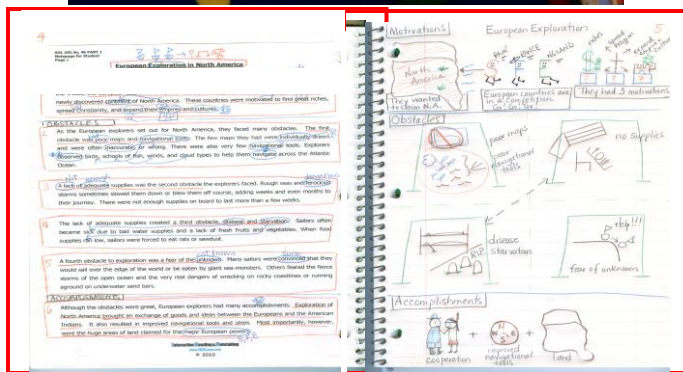 4
SOL USI.4a, 4b PART 1
Notepage for Student
Page 1
European Exploration in North America
newly discovered continent of North America. These countries were motivated to find great riches,
spread Christianity, and expand their empires and cultures.
OBSTACLES
As the European explorers set out for North America, they faced many obstacles. The first
obstacle was poor maps and navigational tools. The few maps they had were individually drawn
and were often inaccurate or wrong. There were also very few navigational tools. Explorers
observed birds, schools of fish, winds, and cloud types to help them navigate across the Atlantic
Ocean.
A lack of adequate supplies was the second obstacle the explorers faced. Rough seas and ferocious
storms sometimes slowed them down or blew them off course, adding weeks and even months to
their journey. There were not enough supplies on board to last more than a few weeks.
The lack of adequate supplies created a third obstacle, disease and starvation. Sailors often
became sick due to bad water supplies and a lack of fresh fruits and vegetables. When food
supplies ran low, sailors were forced to eat rats or sawdust.
A fourth obstacle to exploration was a fear of the unknown. Many sailors were convinced that they
would sail over the edge of the world or be eaten by giant sea-monsters. Others feared the fierce
storms of the open ocean and the very real dangers of wrecking on rocky coastlines or running
aground on underwater sand bars.
ACCOMPLISHMENTS
Although the obstacles were great, European explorers had many accomplishments. Exploration of
North America brought an exchange of goods and ideas between the Europeans and the American
Indians. It also resulted in improved navigational tools and ships. Most importantly, however,
were the huge areas of land claimed for the major European powers.
© 2010
5
Motivations
European Exploration
North
America
They wanted
to claim N.A.
European countries are
in a competition
Go! Go! Go!
They had 3 motivations
Obstacles
poor maps
poor
navigational
tools
no supplies
disease
starvation
R.I.P.
help!!!
fear of unknown
Accomplishments
cooperation
+
improved
navigational
tools
+
land